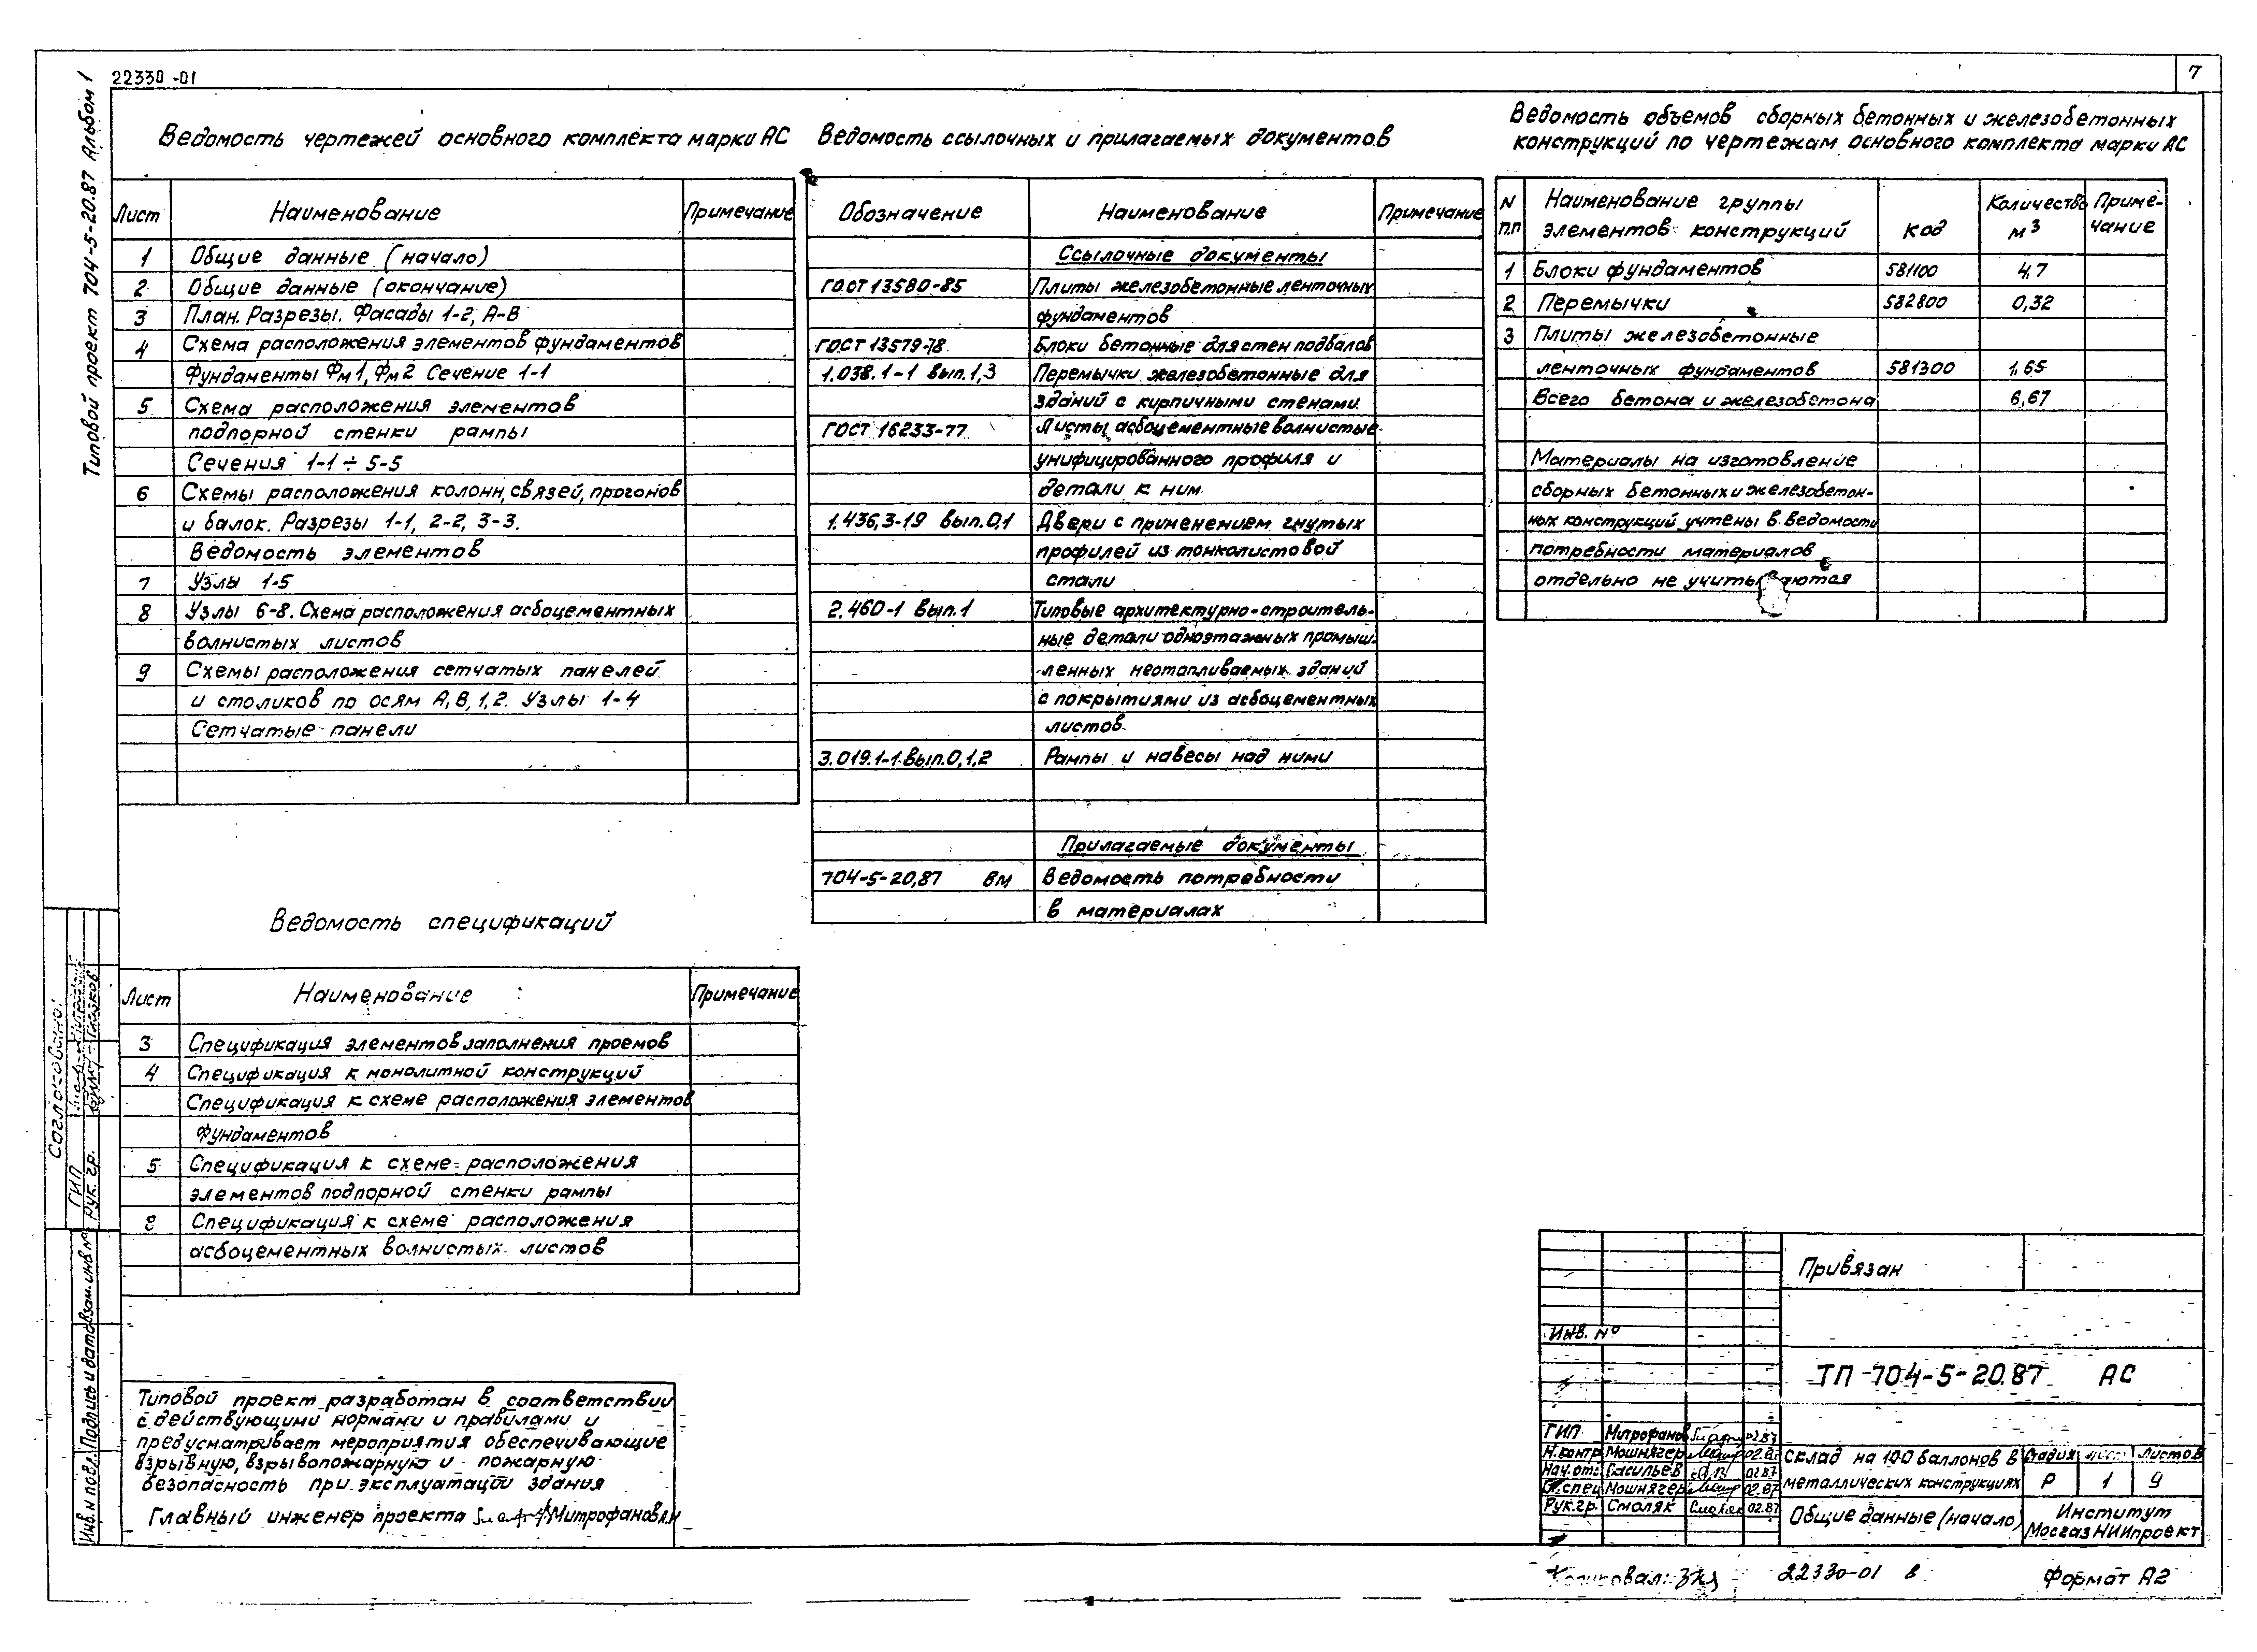 22330-01
7
Типовой проект 704-5-20.87 Альбом 1
Ведомость чертежей основного комплекта марки АС
Лист Наименование Примечание
1 Общие данные (начало)
2 Общие данные (окончание)
3 План. Разрезы. Фасады 1-2, А-В
4 Схема расположения элементов фундаментов
Фундаменты Фм1, Фм2 Сечение 1-1
5 Схема расположения элементов
подпорной стенки рампы
Сечения 1-1 ÷ 5-5
6 Схемы расположения колонн, связей, прогонов
и балок. Разрезы 1-1, 2-2, 3-3.
Ведомость элементов
7 Узлы 1-5
8 Узлы 6-8. Схема расположения асбоцементных
волнистых листов
9 Схемы расположения сетчатых панелей
и столиков по осям А, В, 1, 2. Узлы 1-4
Сетчатые панели
Ведомость ссылочных и прилагаемых документов
Обозначение Наименование Примечание
Ссылочные документы
ГОСТ 13580-85 Плиты железобетонные ленточных
фундаментов
ГОСТ 13579-78 Блоки бетонные для стен подвалов
1.038.1-1 вып.1,3 Перемычки железобетонные для
зданий с кирпичными стенами.
ГОСТ 16233-77 Листы асбоцементные волнистые
унифицированного профиля и
детали к ним
1.436.3-19 вып.0,1 Двери с применением гнутых
профилей из тонколистовой
стали
2.460-1 вып.1 Типовые архитектурно-строитель-
ные детали одноэтажных промыш-
ленных неотапливаемых зданий
с покрытиями из асбоцементных
листов
3.019.1-1 вып.0,1,2 Рампы и навесы над ними
Прилагаемые документы
704-5-20,87 ВМ Ведомость потребности
в материалах
Ведомость объемов сборных бетонных и железобетонных
конструкций по чертежам основного комплекта марки АС
N п.п Наименование группы элементов конструкций Код Количество м³ Приме-чание
1 Блоки фундаментов 581100 4,7
2 Перемычки 582800 0,32
3 Плиты железобетонные
ленточных фундаментов 581300 1,65
Всего бетона и железобетона 6,67
Материалы на изготовление
сборных бетонных и железобетон-
ных конструкций учтены в ведомости
потребности материалов
отдельно не учитываются
Ведомость спецификаций
Лист Наименование Примечание
3 Спецификация элементов заполнения проемов
4 Спецификация к монолитной конструкций
Спецификация к схеме расположения элементов
фундаментов
5 Спецификация к схеме расположения
элементов подпорной стенки рампы
8 Спецификация к схеме расположения
асбоцементных волнистых листов
Типовой проект разработан в соответствии
с действующими нормами и правилами и
предусматривает мероприятия обеспечивающие
взрывную, взрывопожарную и пожарную
безопасность при эксплуатации здания
Главный инженер проекта Митрофанов
Согласовано:
ГИП
Рук. гр. Глазков
Взам. инв №
Подпись и дата
Инв. N подл.
Привязан
Инв. №
ТП 704-5-20.87 АС
ГИП Митрофанов 02.87
Н.контр Мошнягер 02.87
Нач.отд Васильев 02.87
Гл.спец Мошнягер 02.87
Рук.гр. Смоляк 02.87
Склад на 100 баллонов в
металлических конструкциях
Стадия Лист Листов
Р 1 9
Общие данные (начало)
Институт
МосгазНИИпроект
Копировал:
22330-01 8
Формат А2